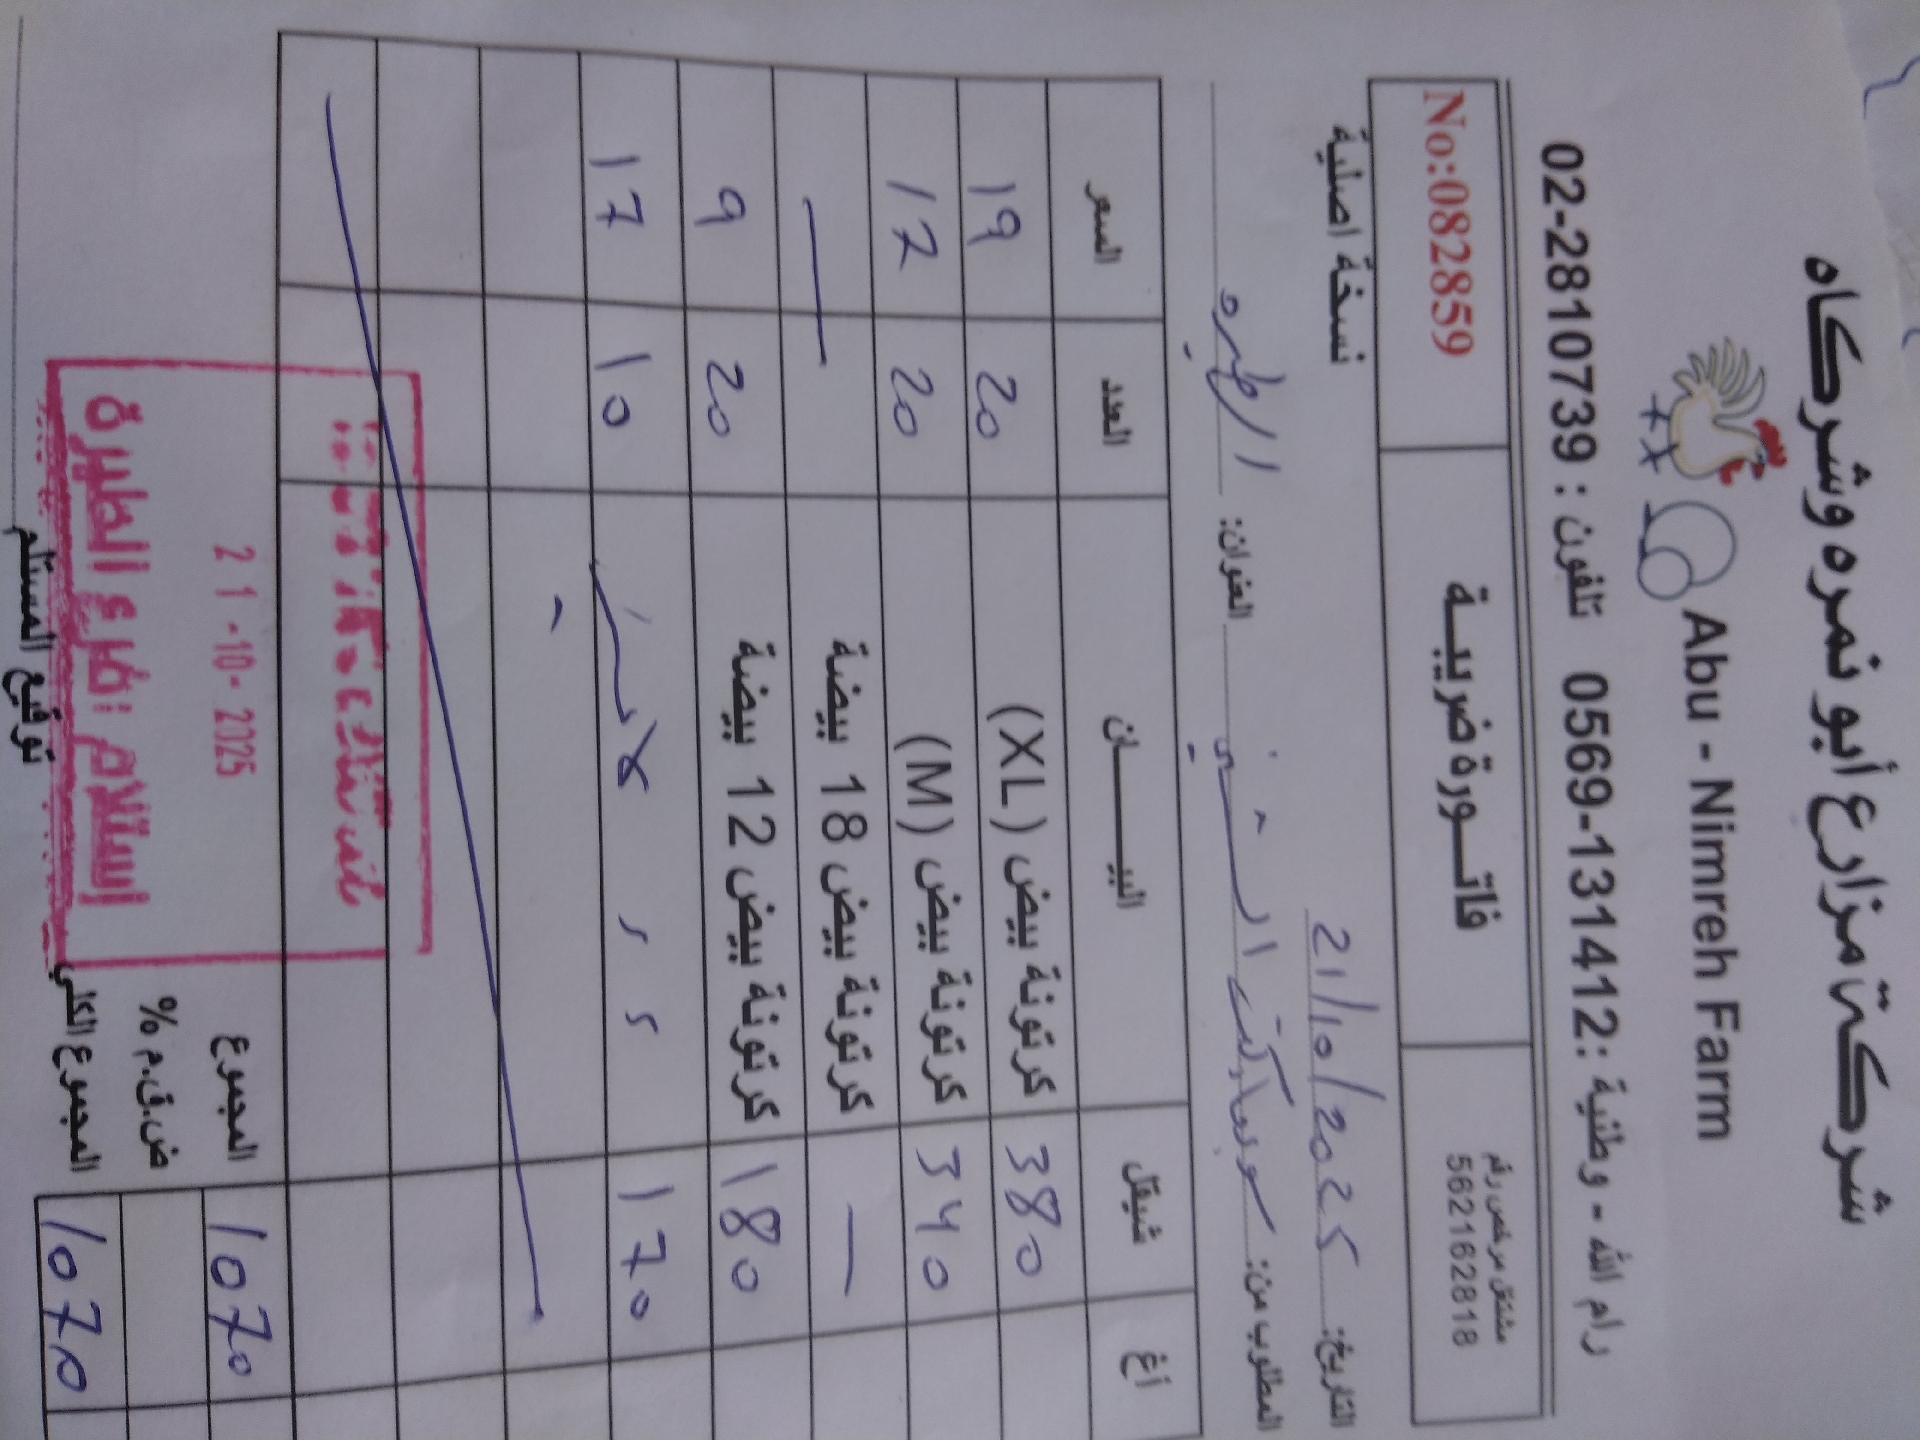 شركة مزارع أبو نمره وشركاه
Abu - Nimreh Farm
رام الله - وطنية : 0569-131412 تلفون : 02-2810739
مشتغل مرخص رقم 562162818
فاتورة ضريبية
No:082859
التاريخ: 21/10/2025
نسخة اصلية
المطلوب من: سوبرماركت العنوان: الطيره
أغ شيقل البيان العدد السعر
380 كرتونة بيض (XL) 20 19
340 كرتونة بيض (M) 20 17
— كرتونة بيض 18 بيضة —
180 كرتونة بيض 12 بيضة 20 9
170 10 17
المجموع 1070
ض.ق.م %
المجموع الكلي 1070
21-10-2025
إستلام :فرع الطيرة
توقيع المستلم